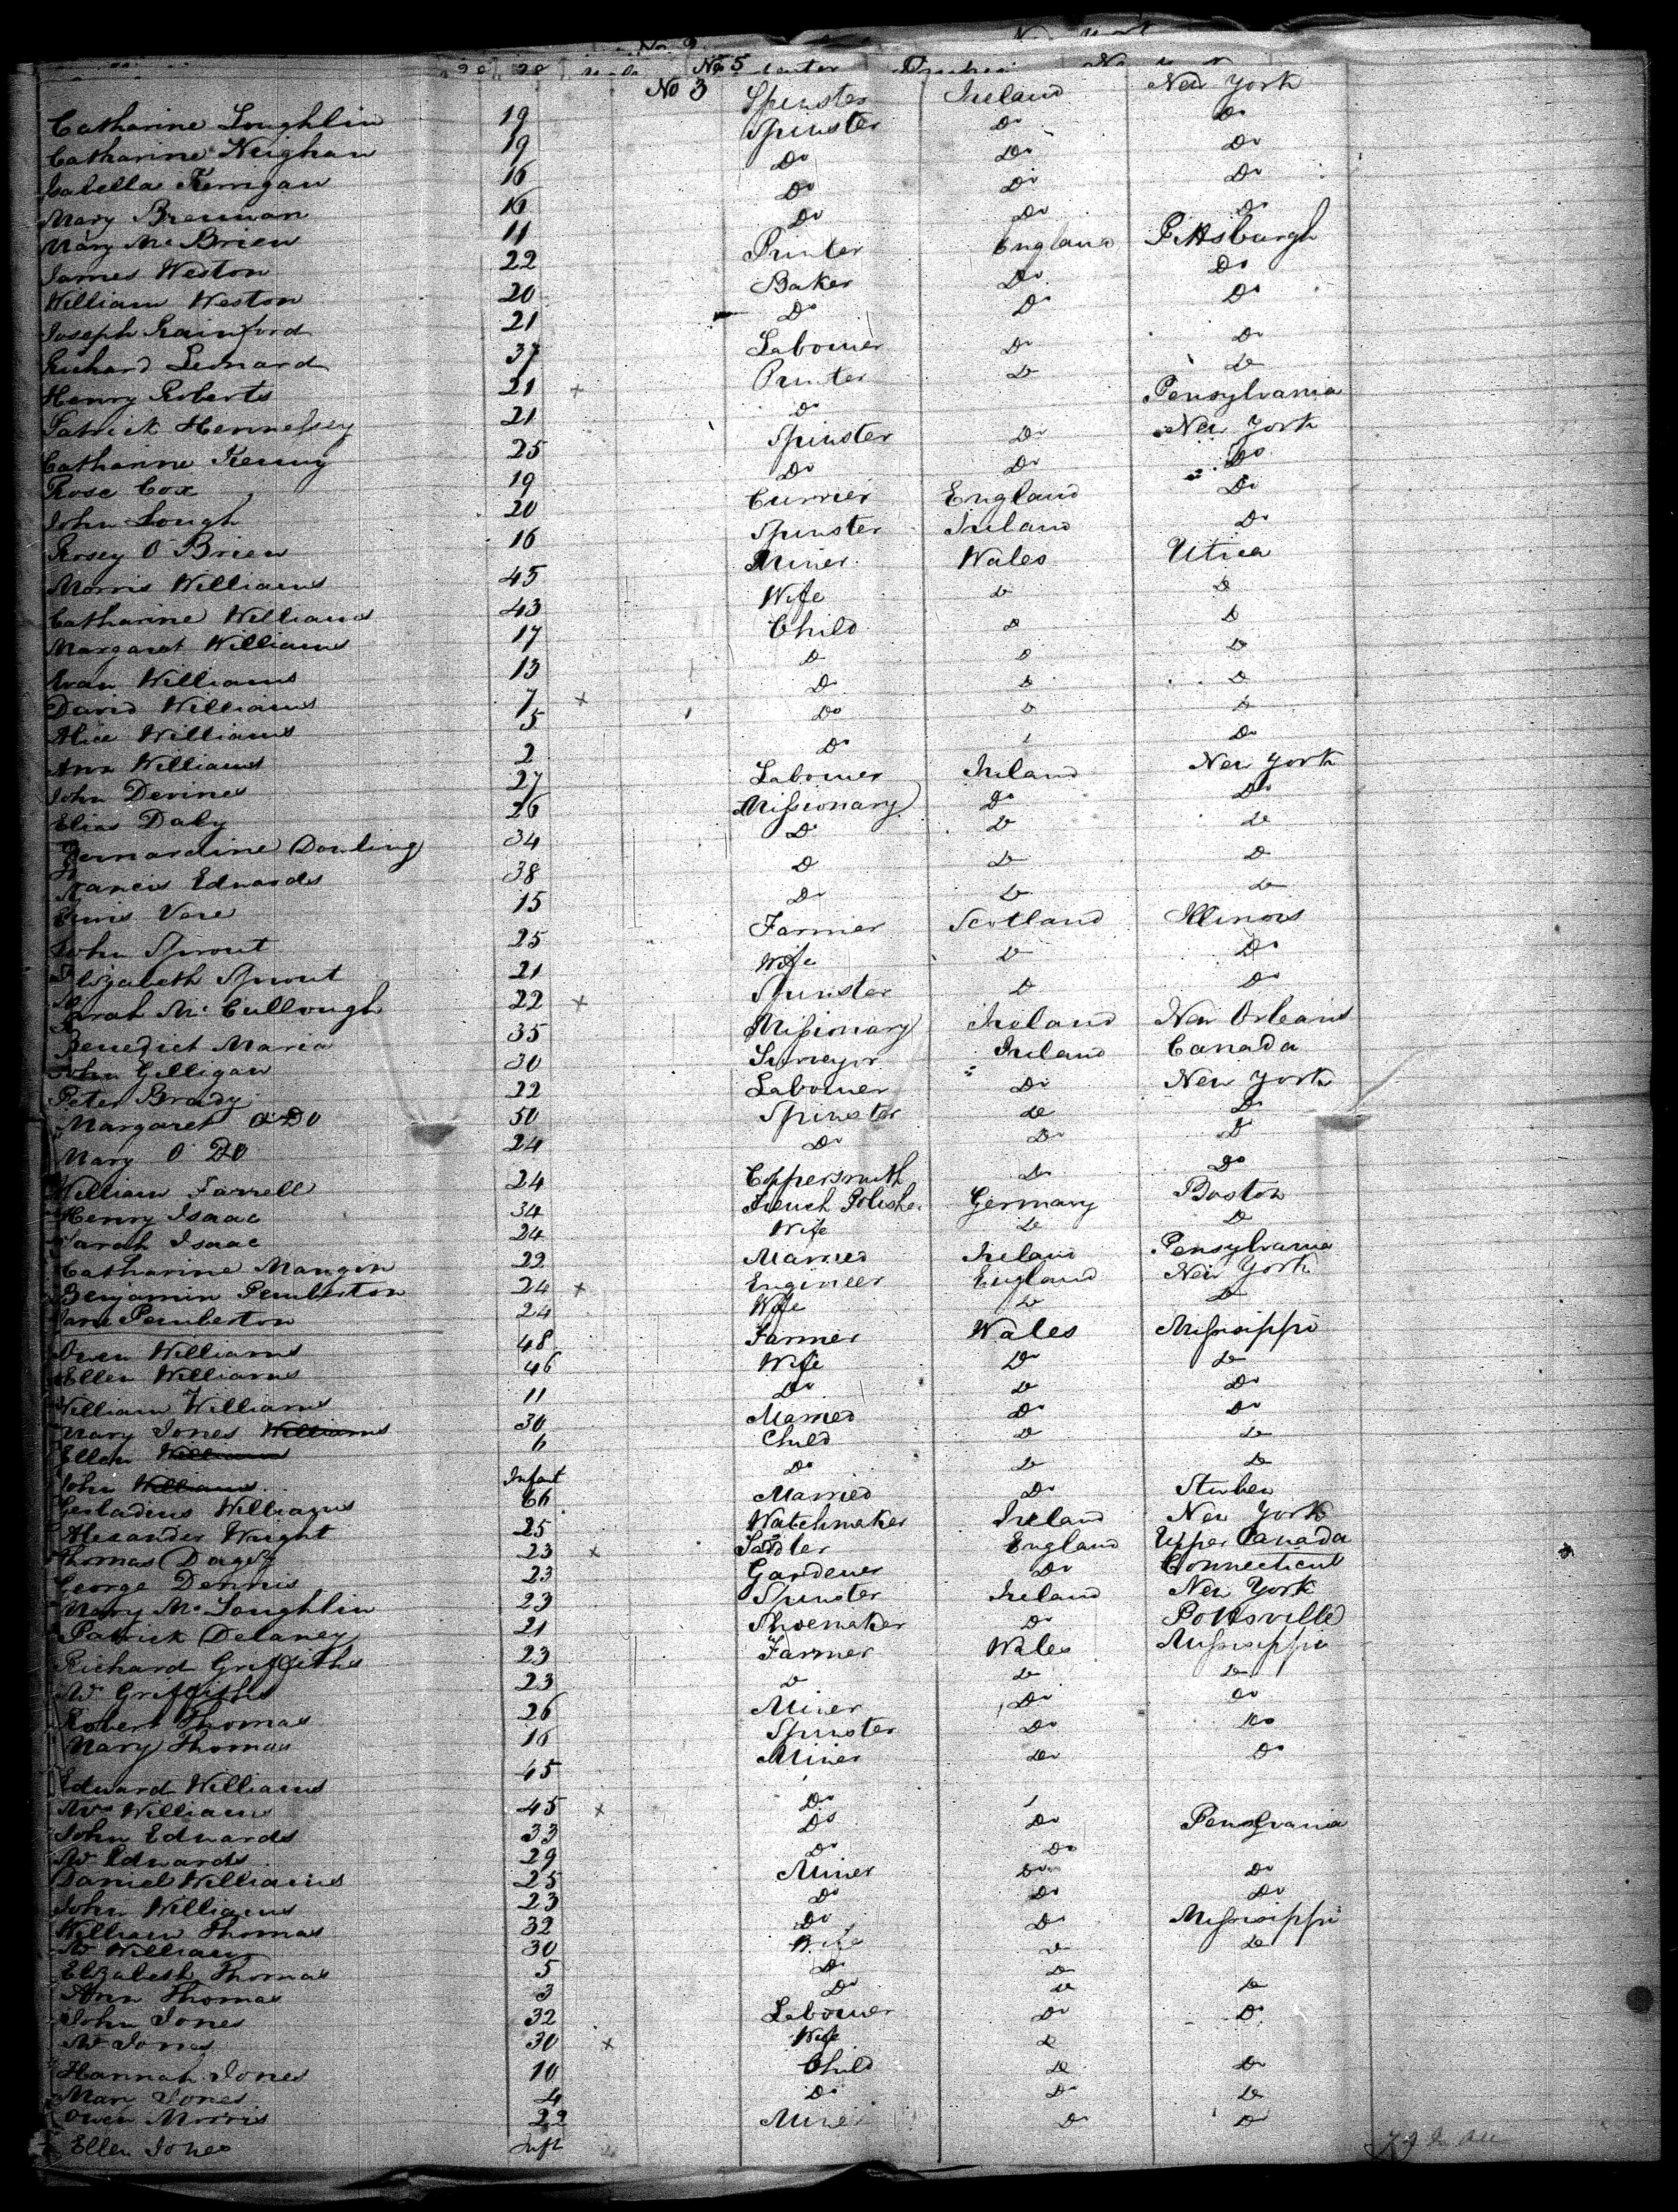 No 5
No 3 Spinster Ireland New York
Catharine Loughlin 19 Spinster Do Do
Catharine Neighan 19 Do Do Do
Isabella Kerrigan 16 Do Do Do
Mary Brennan 16 Do Do Do
Mary McBrien 11 Printer England Pittsburgh
James Weston 22 Baker Do Do
William Weston 20 Do Do Do
Joseph Rainford 21 Labourer Do Do
Richard Leonard 37 Printer Do Do
Henry Roberts 21 + Do Pensylvania
Patrick Hennessy 21 Spinster Do New York
Catharine Kenny 25 Do Do Do
Rose Cox 19 Currier England Do
John Lough 20 Spinster Ireland Do
Rosey O'Brien 16 Miner Wales Utica
Morris Williams 45 Wife Do Do
Catharine Williams 43 Child Do Do
Margaret Williams 17 Do Do Do
Evan Williams 13 Do Do Do
David Williams 7 + Do Do Do
Alice Williams 5 Do Do
Ann Williams 2 Labourer Ireland New York
John Devine 27 Missionary Do Do
Elias Daly 26 Do Do Do
Bernardine Dowling 34 Do Do Do
Francis Edwards 38 Do Do Do
Vere 15 Farmer Scotland Illinois
John Sprout 25 Wife Do Do
Elizabeth Sprout 21 Spinster Do Do
Sarah McCullough 22 + Missionary Ireland New Orleans
Benedict Maria 35 Surveyor Ireland Canada
John Gilligan 30 Labourer Do New York
Peter Brady 22 Spinster Do Do
Margaret O Do 50 Do Do Do
Mary O Do 24 Coppersmith Do Do
William Farrell 24 French Polisher Germany Boston
Henry Isaac 34 Wife Do Do
Sarah Isaac 24 Married Ireland Pensylvania
Catharine Mangin 22 Engineer England New York
Benjamin Pemberton 24 + Wife Do Do
Jane Pemberton 24 Farmer Wales Missisippi
Owen Williams 48 Wife Do Do
Ellen Williams 46 Do Do Do
William Williams 11 Married Do Do
Mary Jones Williams 30 Child Do Do
Ellen Williams 6 Do Do Do
John Williams Infant Married Do Stuben
Williams 66 Watchmaker Ireland New York
Alexander Wright 25 Saddler England Upper Canada
Thomas 23 x Gardener Do Connecticut
George Dennis 23 Spinster Ireland New York
Mary McLoughlin 23 Shoemaker Do Pottsville
Patrick Delaney 21 Farmer Wales Missisippi
Richard Griffiths 23 Do Do Do
Mrs Griffiths 23 Miner Do Do
Robert Thomas 26 Spinster Do Do
Mary Thomas 16 Miner Do Do
Edward Williams 45
Mrs Williams 45 x Do
John Edwards 33 Do Do Pensylvania
Mrs Edwards 29 Do Do
Daniel Williams 25 Miner Do Do
John Williams 23 Do Do Do
William Thomas 32 Do Do Missisippi
Mrs Williams 30 Wife Do Do
Elizabeth Thomas 5 Do Do
Ann Thomas 3 Do Do Do
John Jones 32 Labourer Do Do
Mrs Jones 30 x Wife Do
Hannah Jones 10 Child Do Do
Mary Jones 4 Do Do Do
Owen Morris 22 Miner Do Do
Ellen Jones Inft